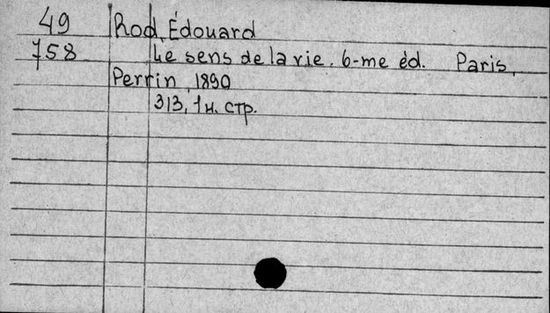 49 Rod, Édouard
758 Le sens de la vie. 6-me éd. Paris,
Perrin, 1890
313, 1 н. стр.